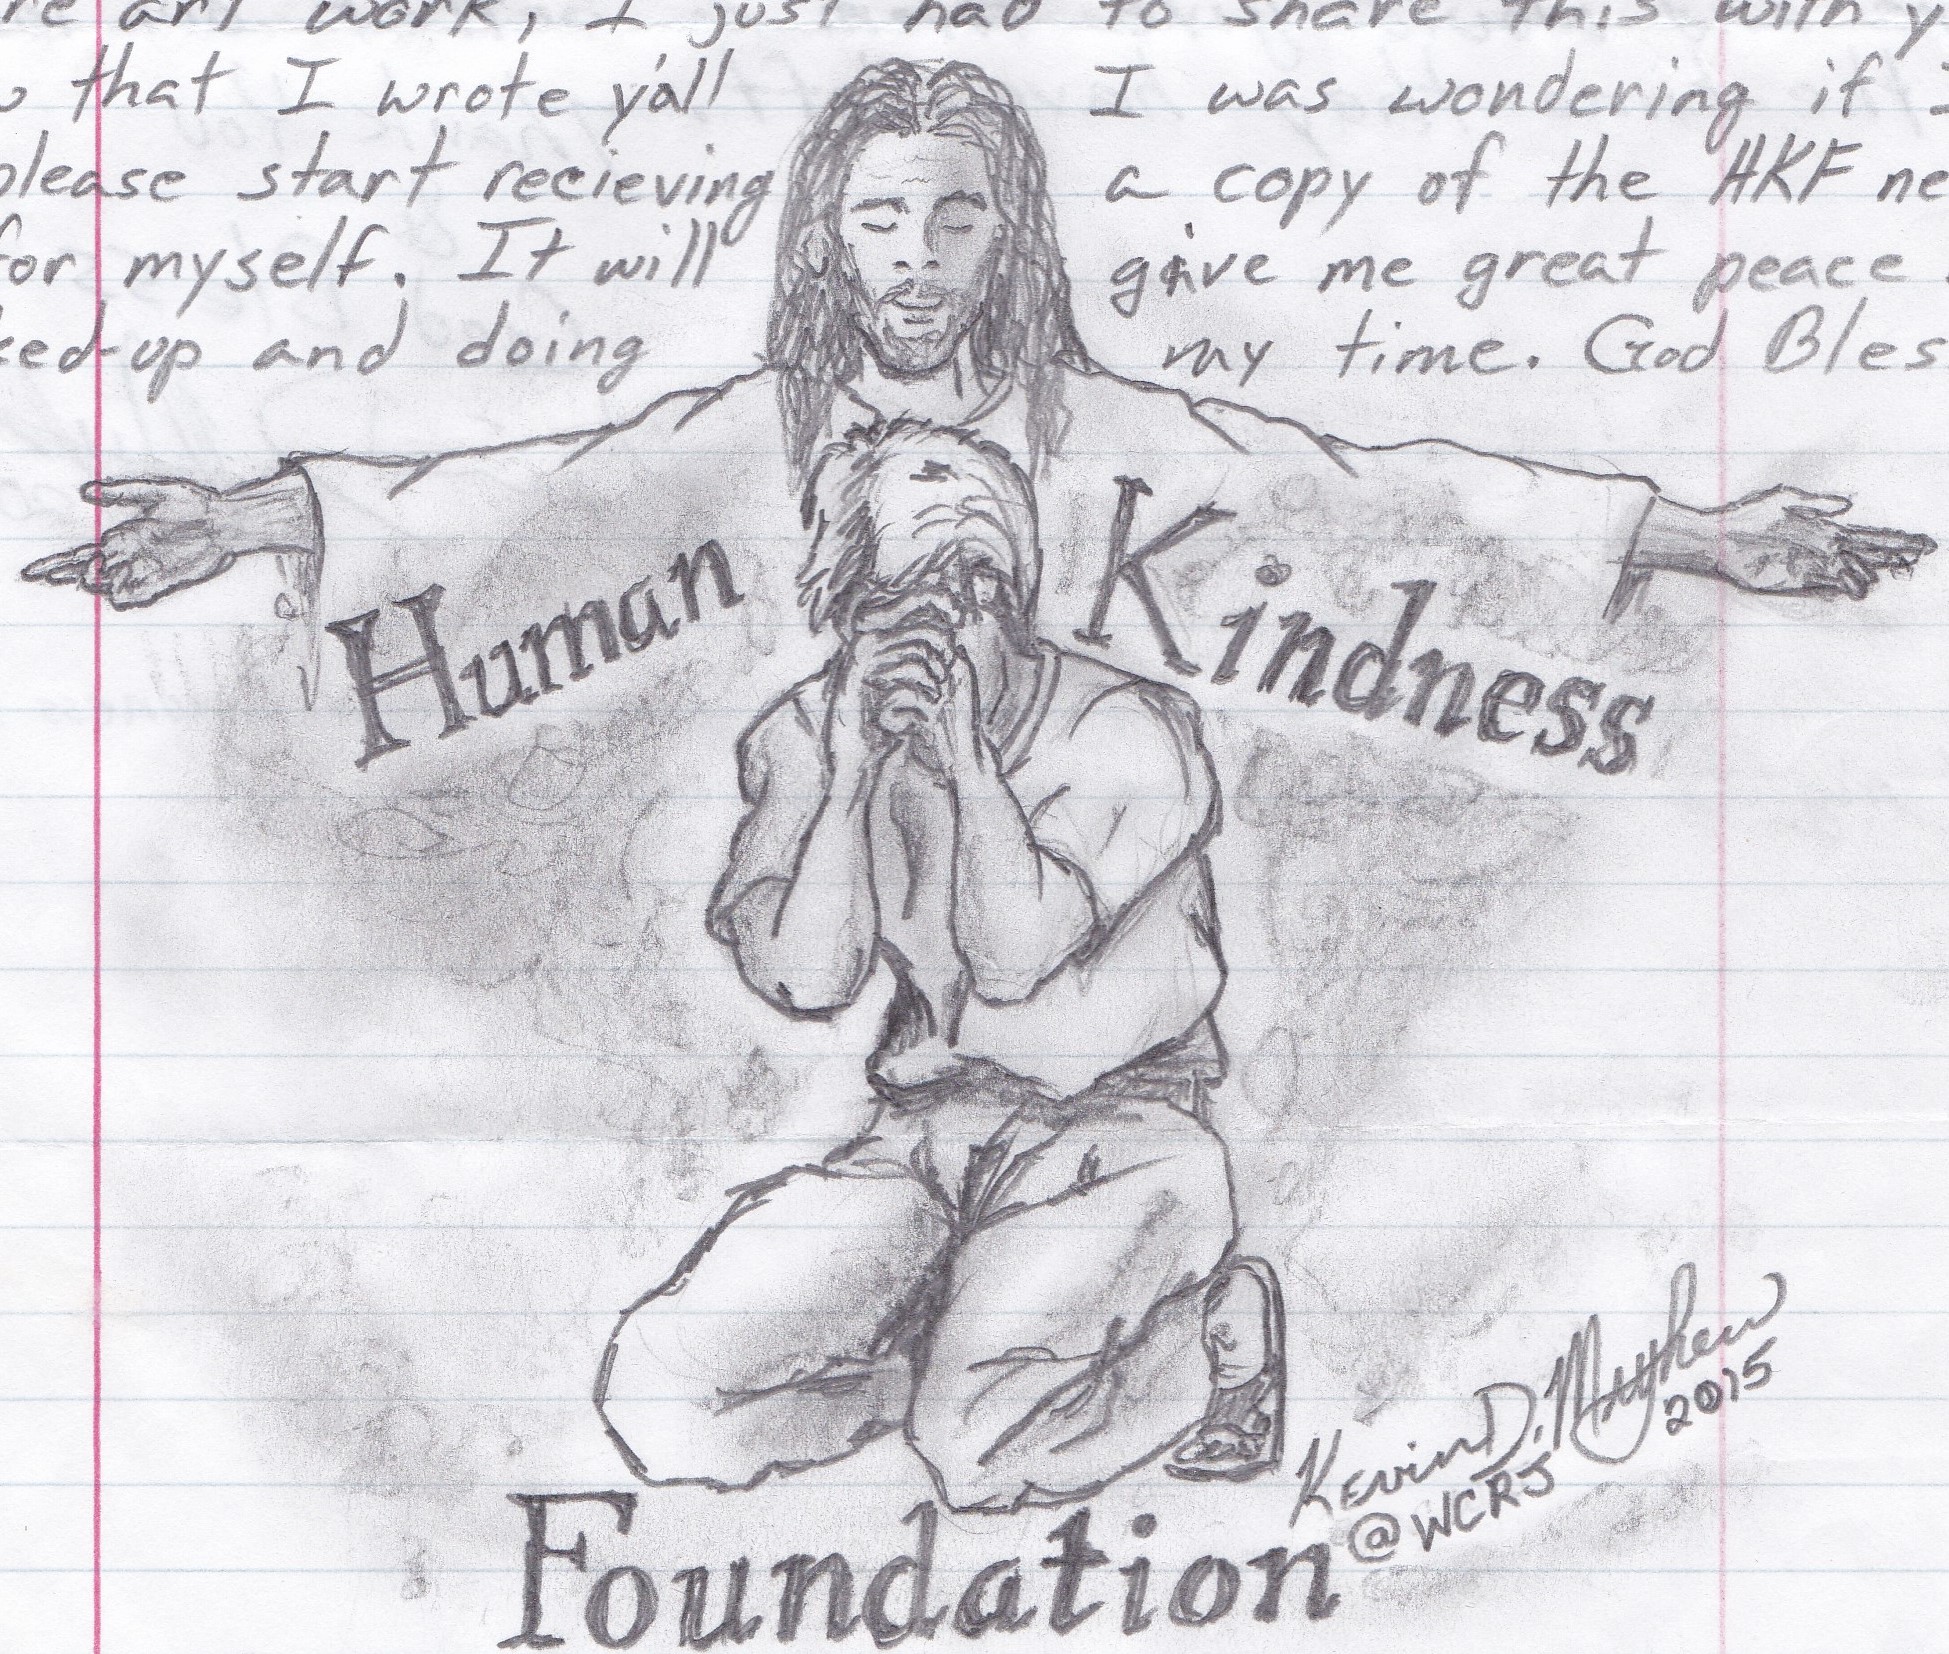 re art work, I just had to share this with y
that I wrote y'all I was wondering if I
please start recieving a copy of the HKF ne
for myself. It will give me great peace
ked-up and doing my time. God Bles
Human Kindness
Kevin D. Matthew
2015
@WCRJ
Foundation